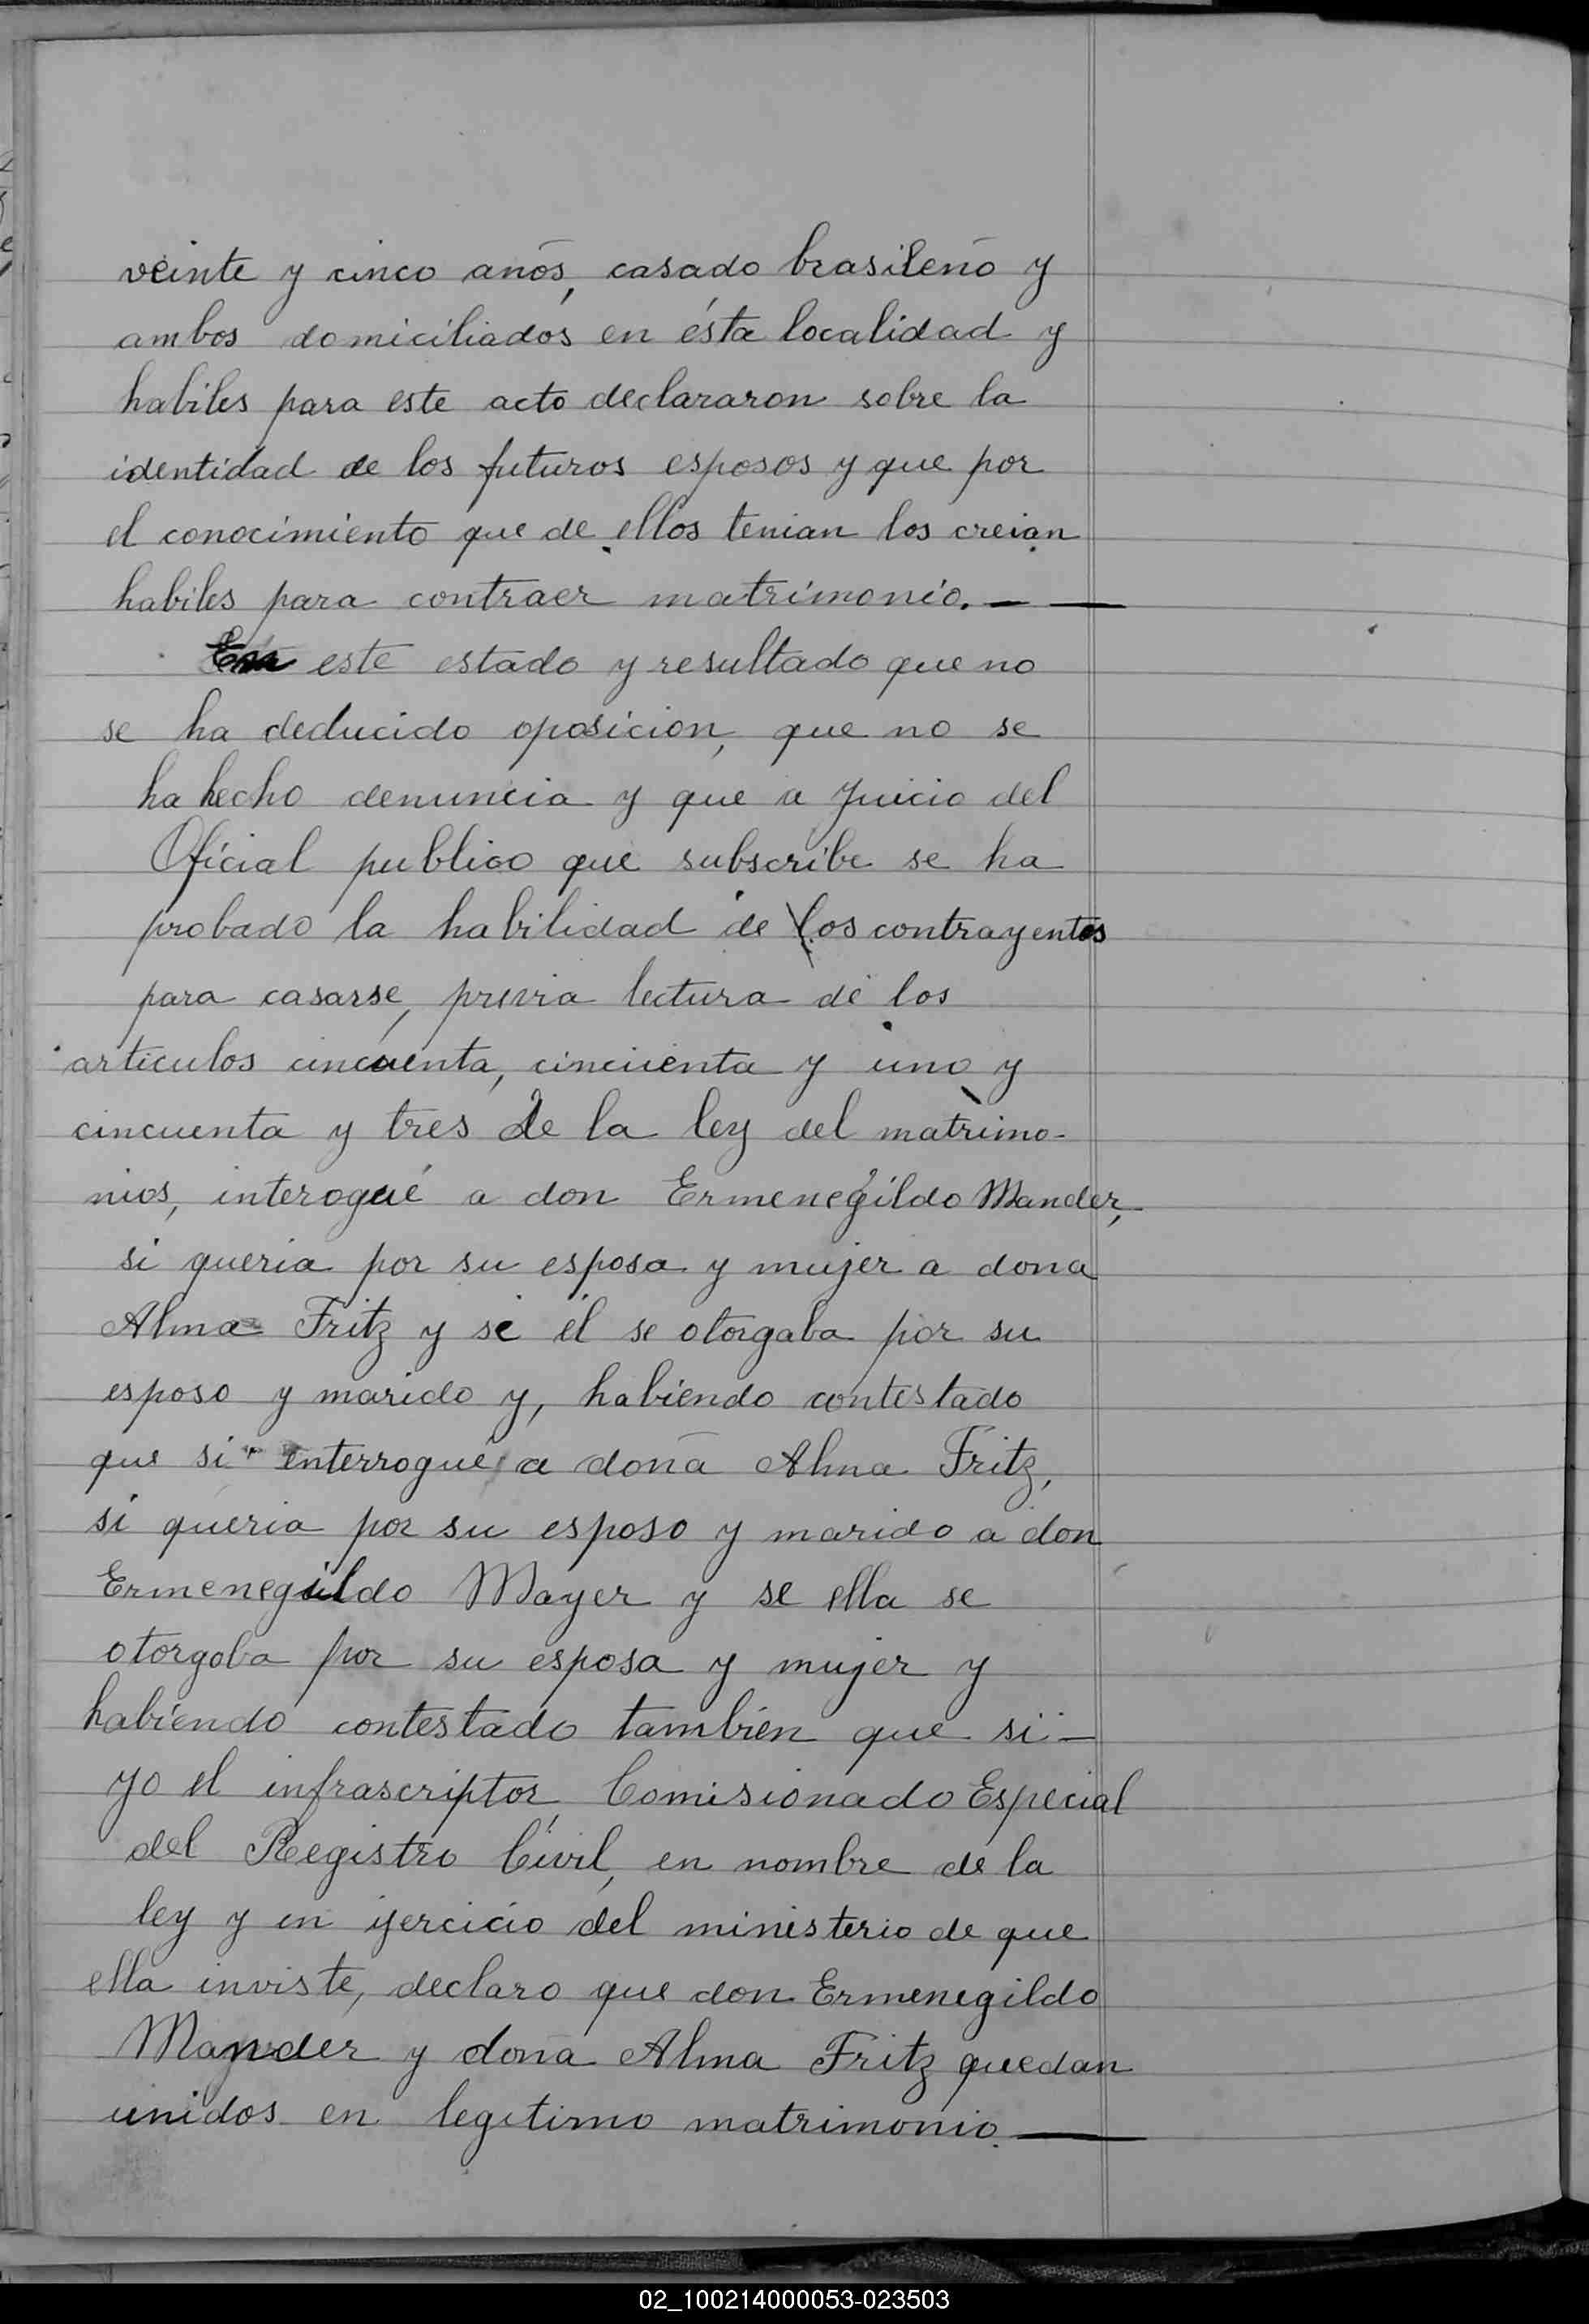 veinte y cinco años, casado brasileño y
ambos domiciliados en ésta localidad y
habiles para este acto declararon sobre la
identidad de los futuros esposos y que por
el conocimiento que de ellos tenian los creian
habiles para contraer matrimonio. — —
En este estado y resultado que no
se ha deducido oposicion, que no se
ha hecho denuncia y que a juicio del
Oficial publico que subscribe se ha
probado la habilidad de los contrayentes
para casarse, previa lectura de los
articulos cincuenta, cincuenta y uno y
cincuenta y tres de la ley del matrimo-
nios, interogué a don Ermenegildo Mander,
si queria por su esposa y mujer a dona
Alma Fritz y si él se otorgaba por su
esposo y marido y, habiendo contestado
que si interrogué a doña Alma Fritz,
si queria por su esposo y marido a don
Ermenegildo Mayer y se ella se
otorgaba por su esposa y mujer y
habiendo contestado tambien que si —
yo el infrascriptor, Comisionado Especial
del Registro Civil, en nombre de la
ley y en ijercicio del ministerio de que
ella inviste, declaro que don Ermenegildo
Mander y doña Alma Fritz quedan
unidos en legitimo matrimonio. —
02_100214000053-023503